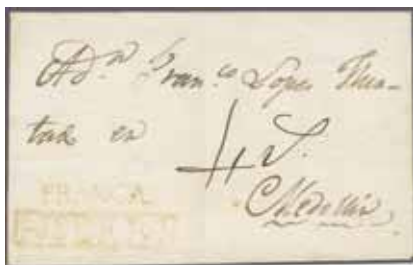 A Dn Franco Lopes Hur-
tad en
4 S.
Medellin
FRANCA